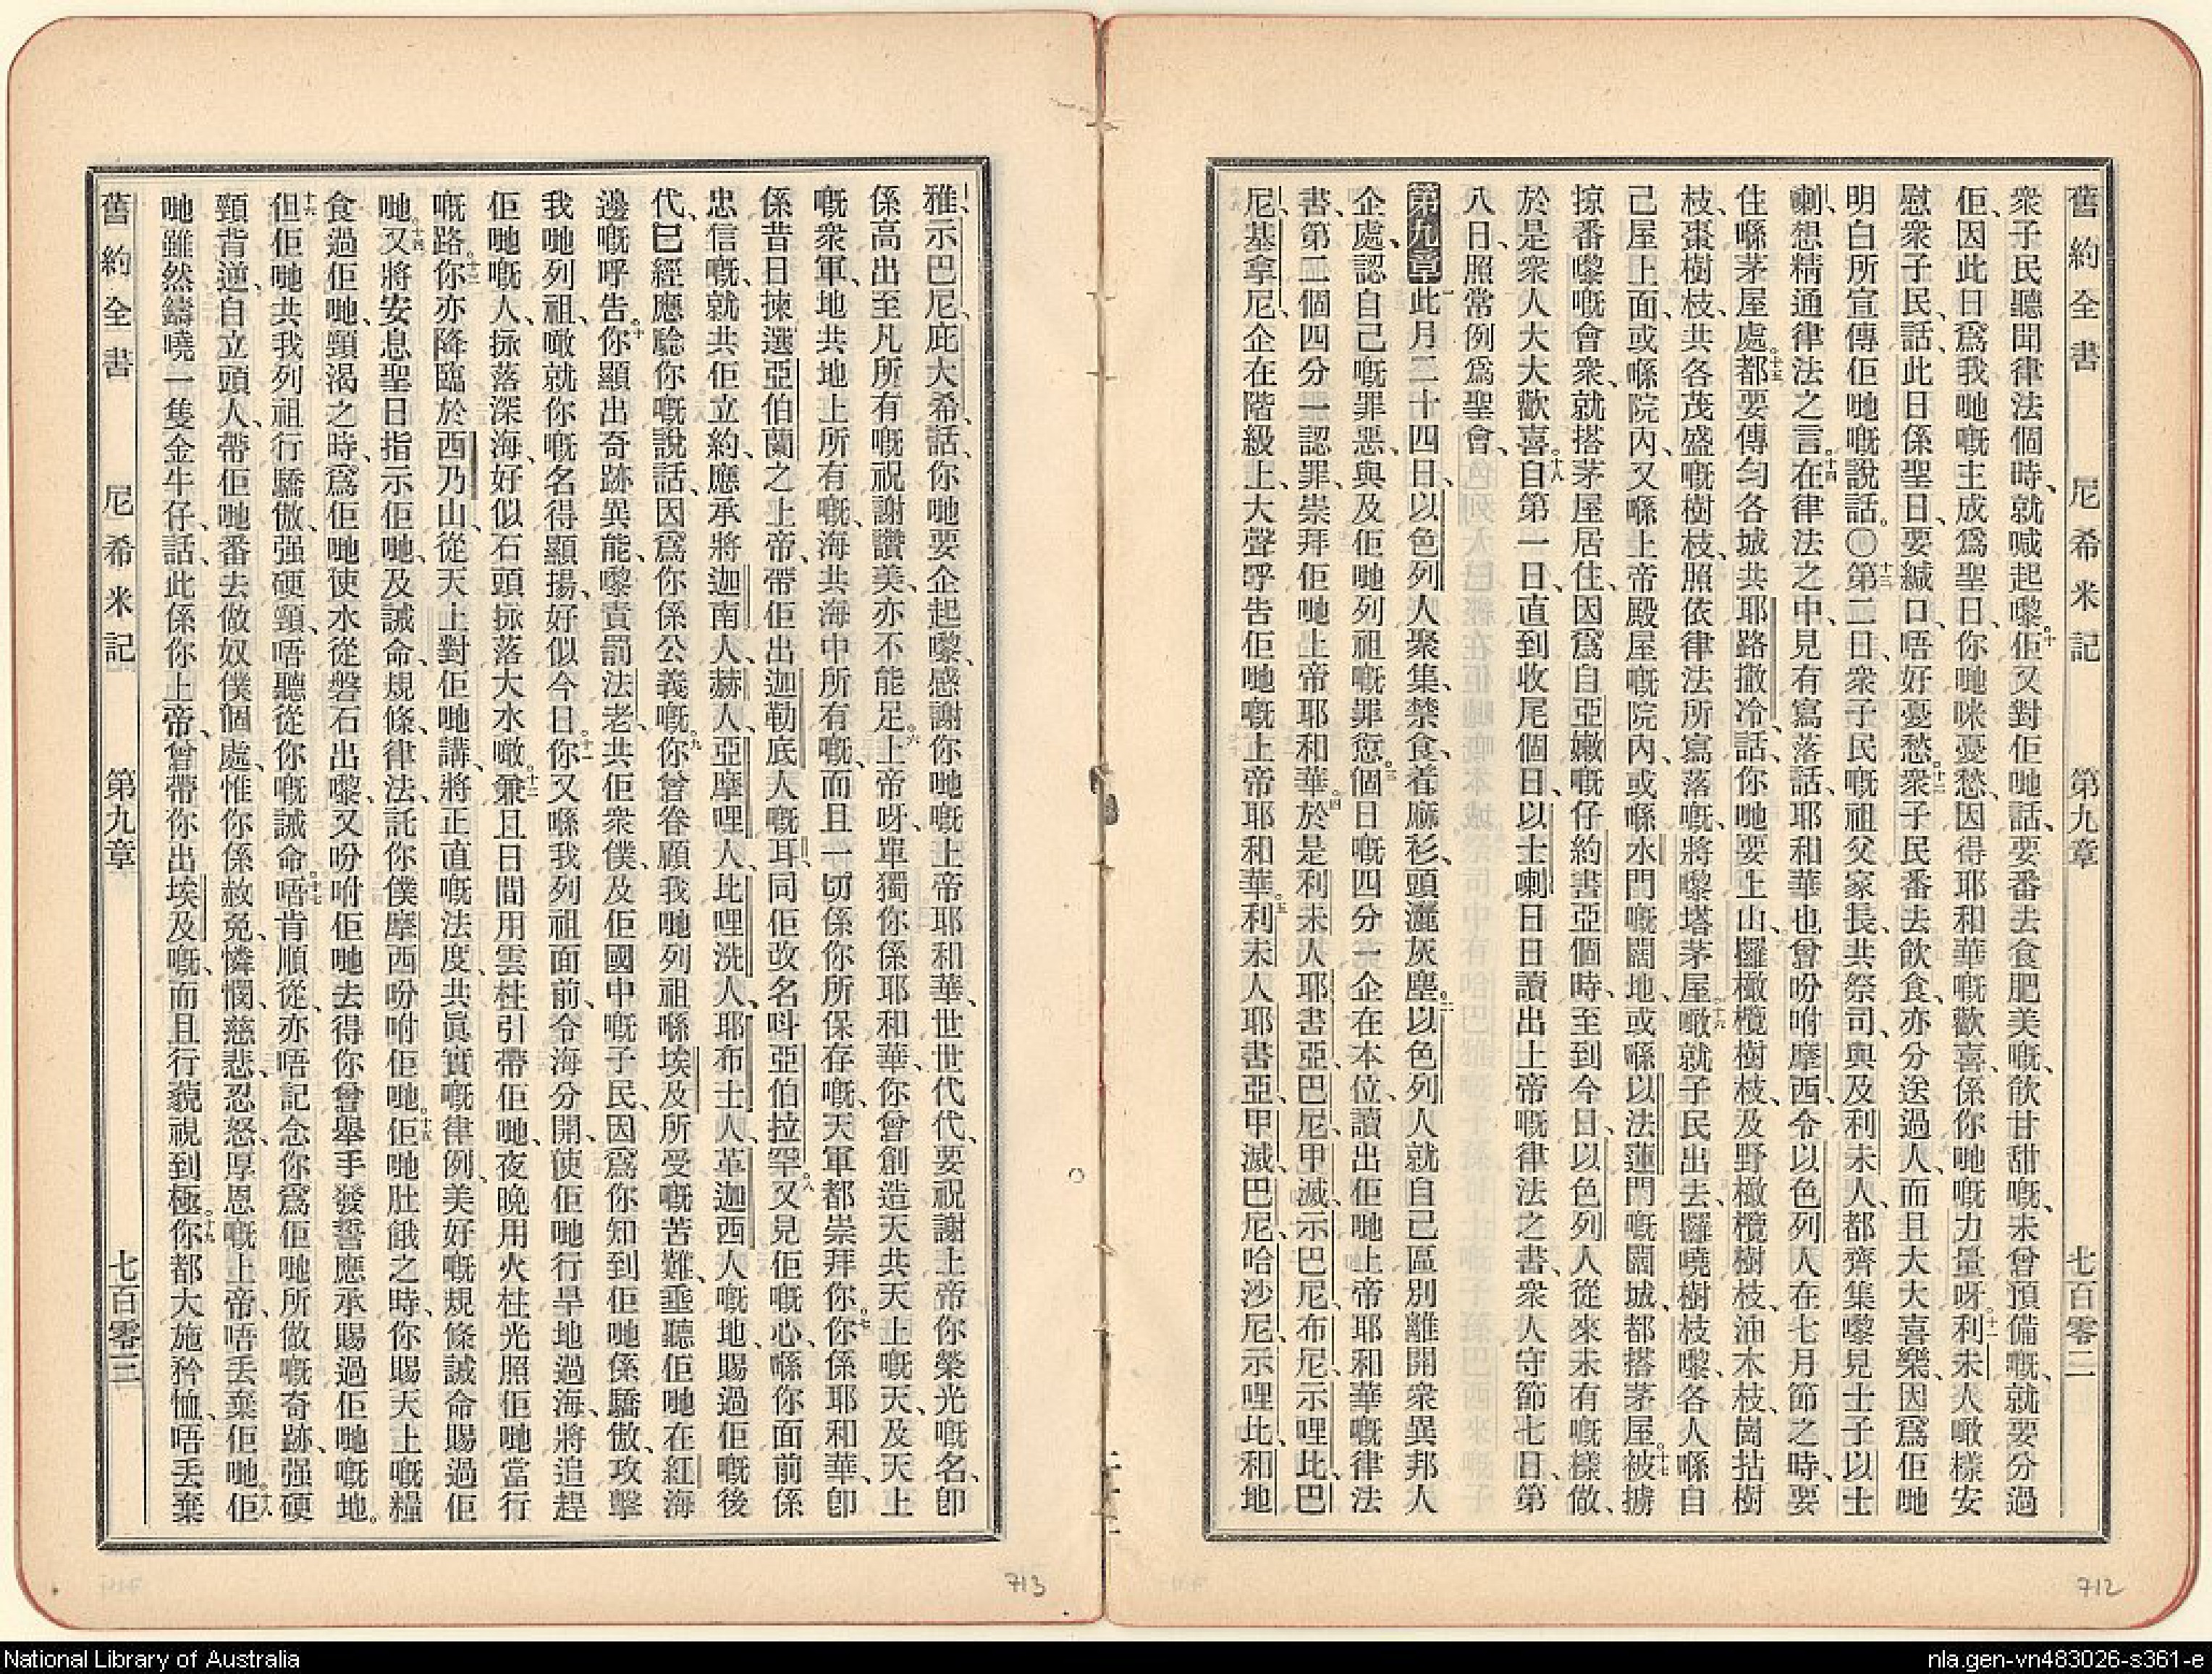 舊約全書 尼希米記 第九章 七百零二
衆子民聽聞律法個時、就喊起嚟。十佢又對佢哋話、要番去食肥美嘅、飲甘甜嘅、未曾預備嘅、就要分過
佢、因此日爲我哋嘅主成爲聖日、你哋咪憂愁、因得耶和華嘅歡喜、係你哋嘅力量呀。十一利未人噉樣安
慰衆子民、話、此日係聖日、要緘口、唔好憂愁。十二衆子民番去飲食、亦分送過人、而且大大喜樂、因爲佢哋
明白所宣傳佢哋嘅說話。〇十三第二日、衆子民嘅祖父家長、共祭司、與及利未人、都齊集嚟見士子以士
喇、想精通律法之言。十四在律法之中、見有寫落話、耶和華也曾吩咐摩西、令以色列人在七月節之時、要
住喺茅屋處。十五都要傳勻各城、共耶路撒冷、話、你哋要上山、攞橄欖樹枝、及野橄欖樹枝、油木枝、崗拈樹
枝、棗樹枝、共各茂盛嘅樹枝、照依律法所寫落嘅、將嚟搭茅屋。十六噉就子民出去、攞曉樹枝嚟、各人喺自
己屋上面、或喺院內、又喺上帝殿屋嘅院內、或喺水門嘅闊地、或喺以法蓮門嘅闊城、都搭茅屋。十七被擄
掠番嚟嘅會衆、就搭茅屋居住、因爲自亞嫩嘅仔約書亞個時、至到今日、以色列人從來未有嘅樣做、
於是衆人大大歡喜。十八自第一日、直到收尾個日、以士喇日日讀出上帝嘅律法之書、衆人守節七日、第
八日、照常例爲聖會、
第九章一此月二十四日、以色列人聚集、禁食、着麻衫、頭灑灰塵。二以色列人就自己區別離開衆異邦人
企處、認自己嘅罪惡、與及佢哋列祖嘅罪愆。三個日嘅四分一、企在本位、讀出佢哋上帝耶和華嘅律法
書、第二個四分一、認罪、崇拜佢哋上帝耶和華。四於是利未人耶書亞、巴尼、甲滅、示巴尼、布尼、示哩比、巴
尼、基拿尼、企在階級上、大聲呼告佢哋嘅上帝耶和華。五利未人耶書亞、甲滅、巴尼、哈沙尼、示哩比、和地
舊約全書 尼希米記 第九章 七百零三
雅、示巴尼、庇大希、話、你哋要企起嚟、感謝你哋嘅上帝耶和華、世世代代、要祝謝上帝你榮光嘅名、卽
係高出至凡所有嘅祝謝讚美、亦不能足。六上帝呀、單獨你係耶和華、你曾創造天共天上嘅天、及天上
嘅衆軍、地共地上所有嘅、海共海中所有嘅、而且一切係你所保存嘅、天軍都崇拜你。七你係耶和華、卽
係昔日揀選亞伯蘭之上帝、帶佢出迦勒底人嘅耳、同佢改名呌亞伯拉罕。八又見佢嘅心、喺你面前係
忠信嘅、就共佢立約、應承將迦南人、赫人、亞摩哩人、比哩洗人、耶布士人、革迦西人嘅地、賜過佢嘅後
代、已經應驗你嘅說話、因爲你係公義嘅。九你曾眷顧我哋列祖喺埃及所受嘅苦難、垂聽佢哋在紅海
邊嘅呼告。十你顯出奇跡異能、嚟責罰法老、共佢衆僕、及佢國中嘅子民、因爲你知到佢哋係驕傲、攻擊
我哋列祖、噉就你嘅名得顯揚、好似今日。十一你又喺我列祖面前、令海分開、使佢哋行旱地過海、將追趕
佢哋嘅人、揼落深海、好似石頭揼落大水噉。十二兼且日間用雲柱引帶佢哋、夜晚用火柱光照佢哋當行
嘅路。十三你亦降臨於西乃山、從天上對佢哋講、將正直嘅法度、共眞實嘅律例、美好嘅規條誡命賜過佢
哋。十四又將安息聖日指示佢哋、及誡命、規條、律法、託你僕摩西吩咐佢哋。十五佢哋肚餓之時、你賜天上嘅糧
食過佢哋、頸渴之時、爲佢哋使水從磐石出嚟、又吩咐佢哋去得你曾舉手發誓應承賜過佢哋嘅地。
十六但佢哋共我列祖行驕傲、强硬頸、唔聽從你嘅誡命。十七唔肯順從、亦唔記念你爲佢哋所做嘅奇跡、强硬
頸背逆、自立頭人、帶佢哋番去做奴僕個處、惟你係赦免、憐憫、慈悲、忍怒、厚恩嘅上帝、唔丟棄佢哋。十八佢
哋雖然鑄曉一隻金牛仔、話、此係你上帝、曾帶你出埃及嘅、而且行藐視到極。十九你都大施矜恤、唔丟棄
713
712
National Library of Australia
nla.gen-vn483026-s361-e